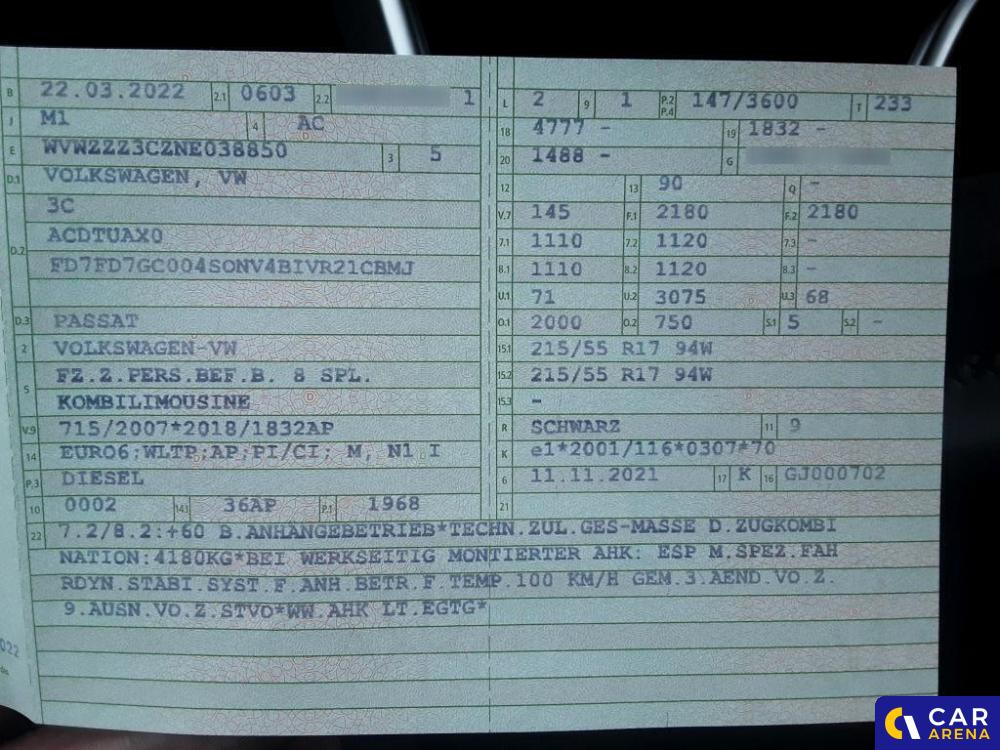 B 22.03.2022 2.1 0603 2.2 1
J M1 4 AC
E WVWZZZ3CZNE038850 3 5
D.1 VOLKSWAGEN, VW
3C
D.2 ACDTUAX0
FD7FD7GC004SONV4BIVR21CBMJ
D.3 PASSAT
2 VOLKSWAGEN-VW
5 FZ.Z.PERS.BEF.B. 8 SPL.
KOMBILIMOUSINE
V.9 715/2007*2018/1832AP
14 EURO6;WLTP;AP;PI/CI; M, N1 I
P.3 DIESEL
10 0002 14.1 36AP P.1 1968
L 2 9 1 P.2 P.4 147/3600 T 233
18 4777 - 19 1832 -
20 1488 - G
12 13 90 Q -
V.7 145 F.1 2180 F.2 2180
7.1 1110 7.2 1120 7.3 -
8.1 1110 8.2 1120 8.3 -
U.1 71 U.2 3075 U.3 68
O.1 2000 O.2 750 S.1 5 S.2 -
15.1 215/55 R17 94W
15.2 215/55 R17 94W
15.3 -
R SCHWARZ 11 9
K e1*2001/116*0307*70
6 11.11.2021 17 K 16 GJ000702
21
22 7.2/8.2:+60 B.ANHÄNGEBETRIEB*TECHN.ZUL.GES-MASSE D.ZUGKOMBI
NATION:4180KG*BEI WERKSEITIG MONTIERTER AHK: ESP M.SPEZ.FAH
RDYN.STABI.SYST.F.ANH.BETR.F.TEMP.100 KM/H GEM.3.AEND.VO.Z.
9.AUSN.VO.Z.STVO*WW.AHK LT.EGTG*
022
CAR
ARENA